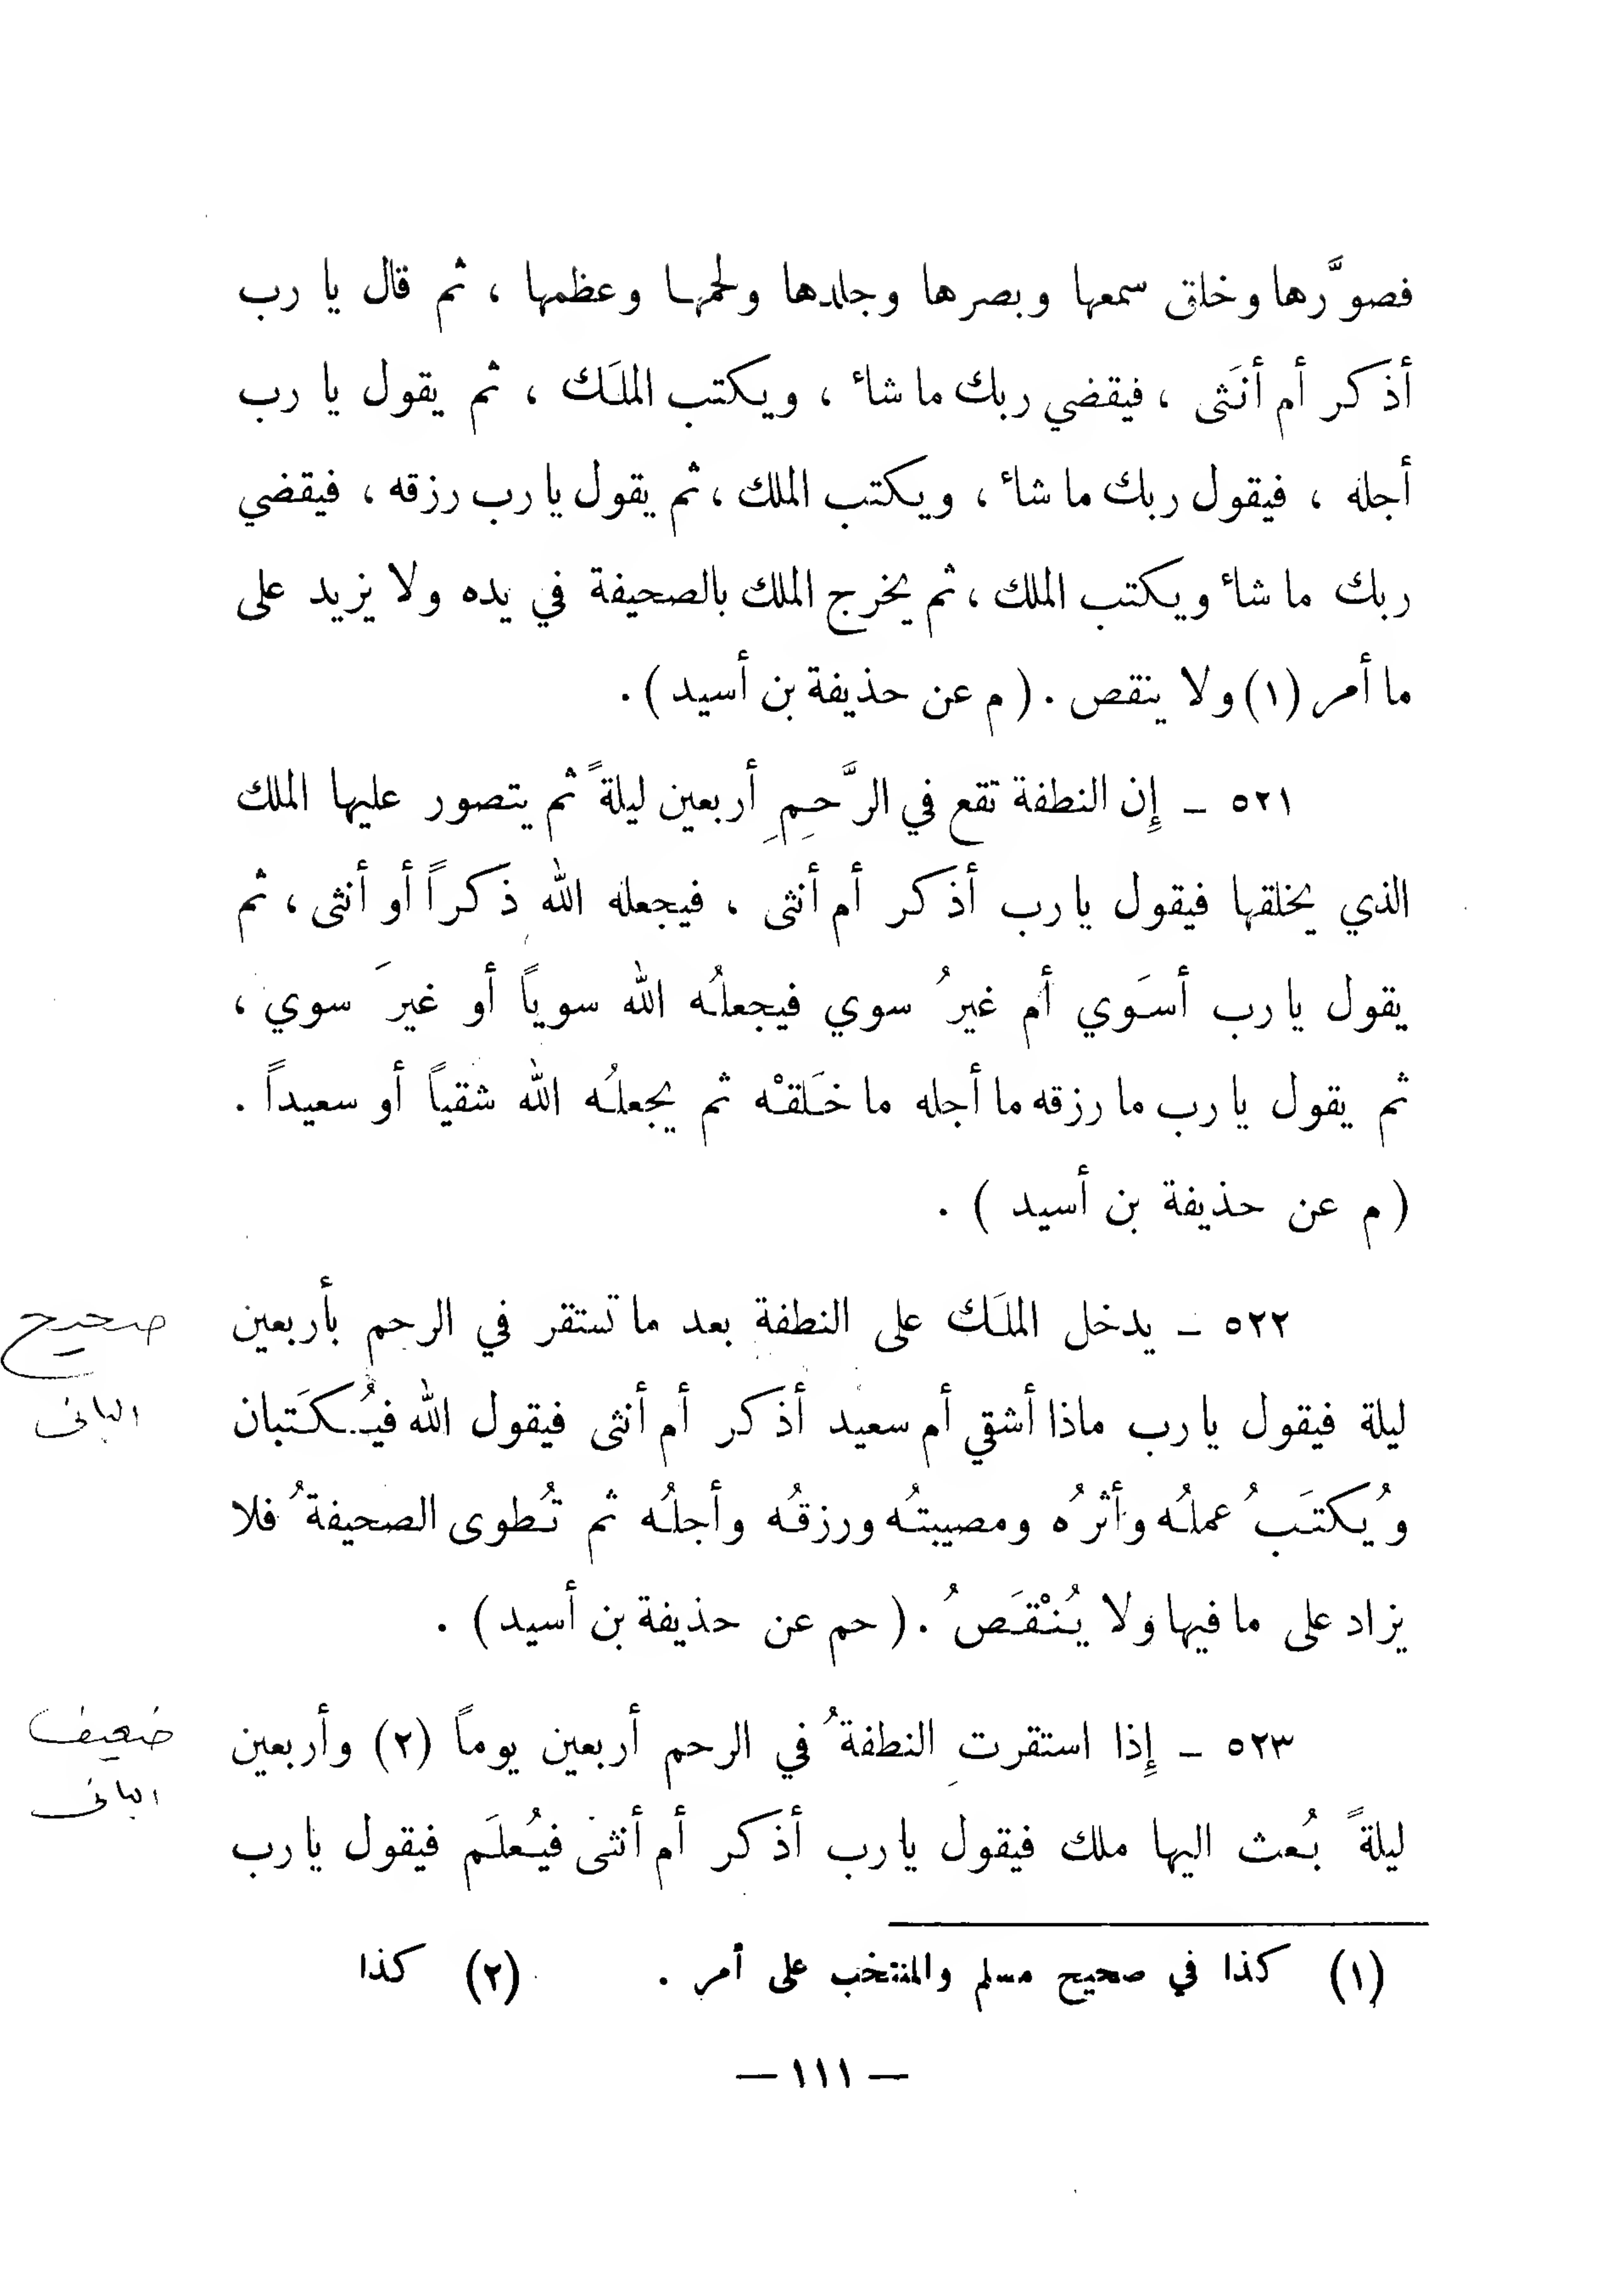 فصوَّرها وخلق سمعها وبصرها وجلدها ولحمها وعظمها ، ثم قال يا رب
أذكر أم أنَثى ، فيقضي ربك ما شاء ، ويكتب الملَك ، ثم يقول يا رب
أجله ، فيقول ربك ما شاء ، ويكتب الملك ، ثم يقول يا رب رزقه ، فيقضي
ربك ما شاء ويكتب الملك ، ثم يخرج الملك بالصحيفة في يده ولا يزيد على
ما أمر (١) ولا ينقص . ( م عن حذيفة بن أسيد ) .
٥٢١ ـ إِن النطفة تقع في الرَّحِمِ أربعين ليلةً ثم يتصور عليها الملك
الذي يخلقها فيقول يا رب أذكر أم أنثى ، فيجعله الله ذكراً أو أنثى ، ثم
يقول يا رب أسَوي أم غيرُ سوي فيجعلُه الله سوياً أو غيرَ سوي ،
ثم يقول يا رب ما رزقه ما أجله ما خَلقْه ثم يجعلُه الله شقياً أو سعيداً .
( م عن حذيفة بن أسيد ) .
٥٢٢ ـ يدخل الملَك على النطفة بعد ما تستقر في الرحم بأربعين
صحيح
ليلة فيقول يا رب ماذا أشقي أم سعيد أذكر أم أنثى فيقول الله فيُكتَبان
البانى
ويُكتَبُ عملُه وأثرُه ومصيبتُه ورزقُه وأجلُه ثم تُطوى الصحيفةُ فلا
يزاد على ما فيها ولا يُنْقَصُ . ( حم عن حذيفة بن أسيد ) .
٥٢٣ ـ إِذا استقرتِ النطفةُ في الرحم أربعين يوماً (٢) وأربعين
ضعيف
البانى
ليلةً بُعث اليها ملك فيقول يا رب أذكر أم أنثى فيُعلَم فيقول يا رب
(١) كذا في صحيح مسلم والمنتخب على أمر . (٢) كذا
— ١١١ —